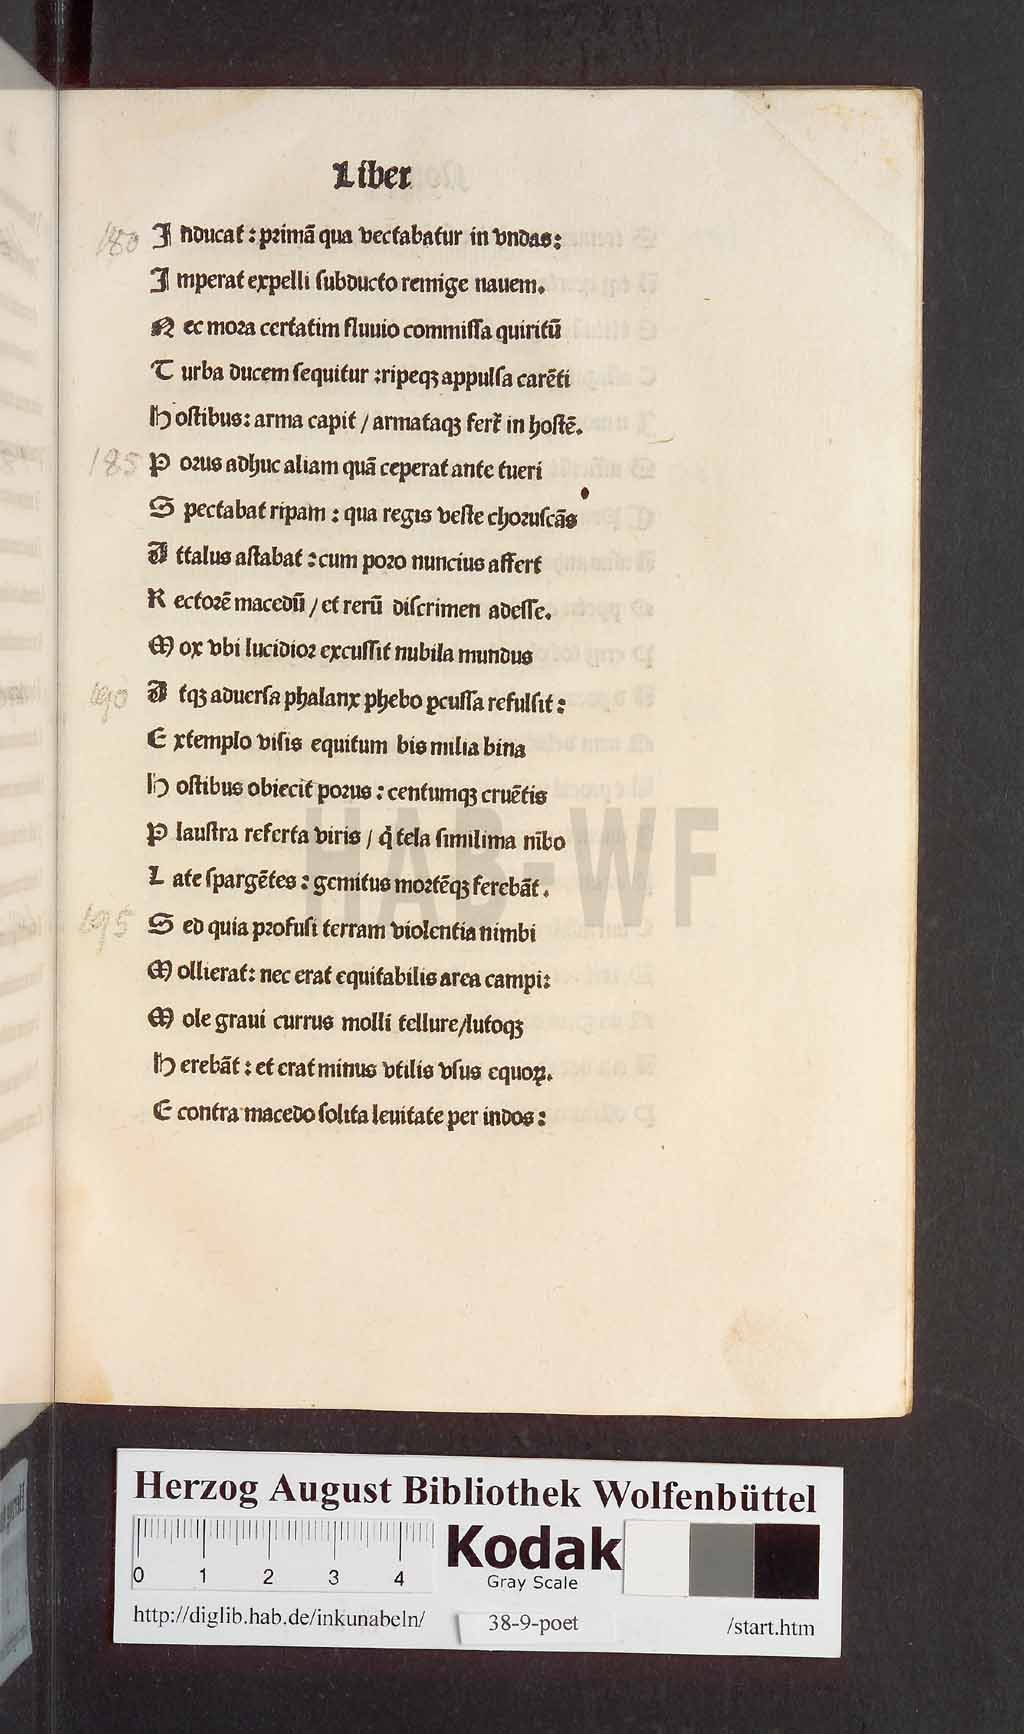 Liber
180 I nducat : primā qua vectabatur in vndas:
I mperat expelli ſubducto remige nauem.
N ec mora certatim fluuio commiſſa quiritū
T urba ducem ſequitur :ripeqꝫ appulſa carēti
H oſtibus: arma capit / armataqꝫ fert̄ in hoſtē.
185 P orus adhuc aliam quā ceperat ante tueri
S pectabat ripam : qua regis veſte choruſcās
A ttalus aſtabat : cum poro nuncius affert
R ectorē macedū / et rerū diſcrimen adeſſe.
M ox vbi lucidior excuſſit nubila mundus
190 A tqꝫ aduerſa phalanx phebo ꝑcuſſa refulſit :
E xtemplo viſis equitum bis milia bina
H oſtibus obiecit porus : centumqꝫ cruētis
P lauſtra referta viris / q̄ tela ſimilima nībo
L ate ſpargētes : gemitus mortēqꝫ ferebāt .
195 S ed quia profuſi terram violentia nimbi
M ollierat: nec erat equitabilis area campi:
M ole graui currus molli tellure/lutoqꝫ
H erebāt : et erat minus vtilis vſus equoꝝ.
E contra macedo ſolita leuitate per indos :
HAB-WF
Herzog August Bibliothek Wolfenbüttel
0 1 2 3 4
Kodak
Gray Scale
http://diglib.hab.de/inkunabeln/ 38-9-poet /start.htm